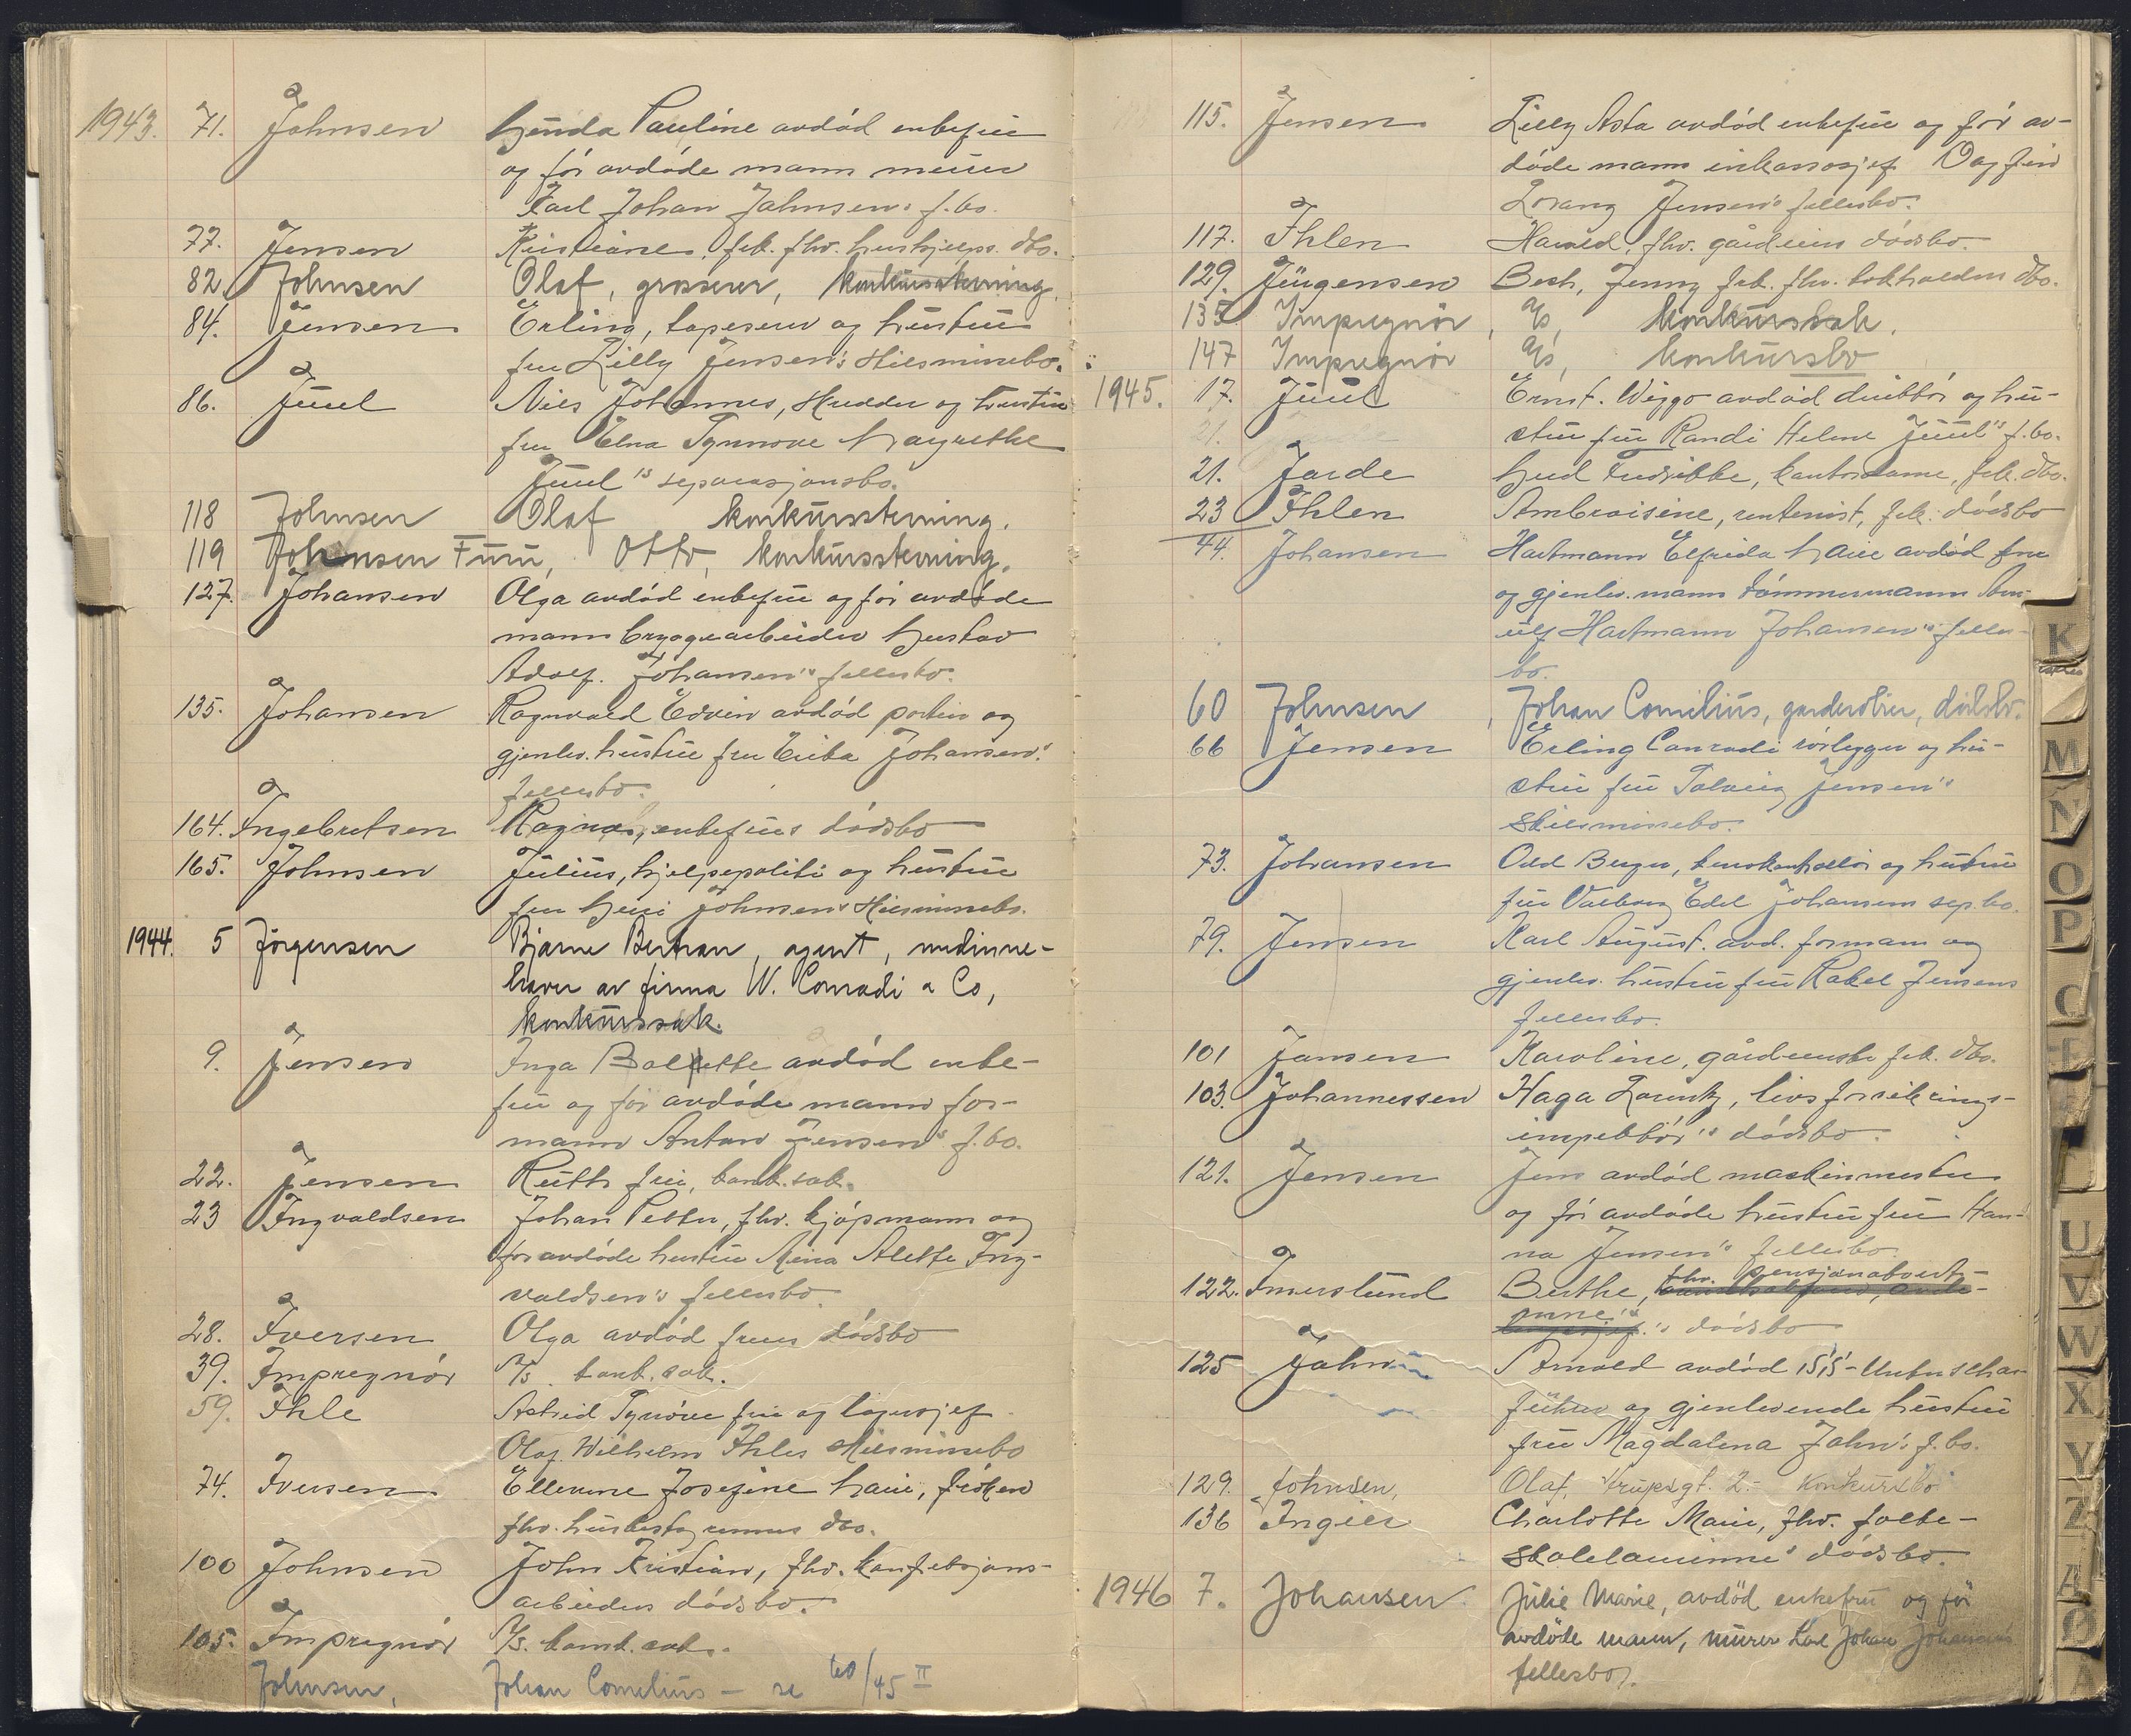 1943. 71. Johnsen Gunda Pauline avdød enkefrue
og før avdøde mann murer
Karl Johan Johnsen's f.bo.
77. Jensen Kristiane, frk. fhv. hushjelps dbo.
82. Johnsen Olaf, grosserer, konkursstevning.
84. Jensen Erling, tapetserer og hustru
fru Lilly Jensen's skilsmissebo.
86. Juul Niels Johannes, skredder og hustru
fru Elna Synnøve Margrethe
Juul's separasjonsbo.
118 Johnsen Olaf konkursstevning.
119 Johnsen Furu, Otto, konkursstevning.
127. Johansen Olga avdød enkefrue og før avdøde
mann bryggearbeider Gustav
Adolf Johansen's fellesbo.
135. Johansen Ragnvald Edvin avdød portier og
gjenlev. hustru fru Erika Johansen's
fellesbo.
164. Ingebretsen Ragna, enkefrues dødsbo
165. Johnsen Julius, hjelpepoliti og hustru
fru Johnsen's skilsmissebo.
1944. 5 Jørgensen Bjarne Bertran, agent, medinne-
haver av firma W. Conradi & Co,
konkurssak.
9. Jensen Inga Bolette avdød enke-
frue og før avdøde mann for-
mann Anton Jensen's f.bo.
22. Jensen Ruth frue, konk.sak.
23 Ingvaldsen Johan Petter, fhv. kjøpmann og
før avdøde hustru Mina Alette Ing-
valdsen's fellesbo.
28. Iversen Olga avdød frues dødsbo
39. Impregnør A/S konk.sak.
59. Ihle Astrid Synøve frue og lagersjef
Olaf Wilhelm Ihles skilsmissebo
74. Iversen Ellevine Josefine Marie, frøken
fhv. husbestyrerinnes dbo.
100 Johnsen John Kristian, fhv. konfeksjons-
arbeiders dødsbo.
105. Impregnør A/S. konk.sak.
Johnsen, Johan Cornelius – se 60/45 II
115. Jensen Lilly Asta avdød enkefrue og før av-
døde mann inkassosjef Dagfinn
Lorang Jensen's fellesbo.
117. Ihlen Harald, fhv. gårdeiers dødsbo.
129. Jürgensen Bech, Jenny frk. fhv. bokholders dbo.
135 Impregnør, A/S, konkurssak.
147 Impregnør A/S, konkursbo
1945. 17. Juul Ernst Wiggo avdød direktør og hu-
stru fru Randi Helene Juul's f.bo.
21.
21. Jarde Gud Fredrikke, kontordame, frk. dbo.
23 Ihlen Ambroisine, rentenist, frk. dødsbo
44. Johansen Hartmann Elfrida Marie avdød frue
og gjenlev. mann tømmermann Arn-
ulf Hartmann Johansen's felles-
bo.
60 Johnsen, Johan Cornelius, garderobier, dødsbo.
66 Jensen Erling Conradi rørlegger og hu-
stru fru Solveig Jensen's
skilsmissebo.
73. Johansen Odd Berger, kinokontrollør og hustru
fru Valborg Edel Johansens sep.bo.
79. Jensen Karl August avd. formann og
gjenlev. hustru fru Rakel Jensens
fellesbo.
101 Jansen Karoline, gårdeierske frk. dbo.
103. Johannessen Haga Lorentz, livsforsikrings-
inspektør's dødsbo.
121. Jensen Jens avdød maskinmester
og før avdøde hustru fru Han-
na Jensen's fellesbo.
122. Imerslund Berthe, fhv. pensjonatvert-
inne's dødsbo
125 Jahn Arnold avdød SS-Unterschar-
führer og gjenlevende hustru
fru Magdalena Jahn's f.bo.
129. Johnsen, Olaf, Krupsgt. 2. – Konkursbo
136 Ingier Charlotte Marie, fhv. folke-
skolelærerinne's dødsbo.
1946 7. Johansen Julie Marie, avdød enkefru og før
avdøde mann, murer Karl Johan Johansen's
fellesbo.
K
M
N
O
P
U
V
W
X
Y
Z
Ø